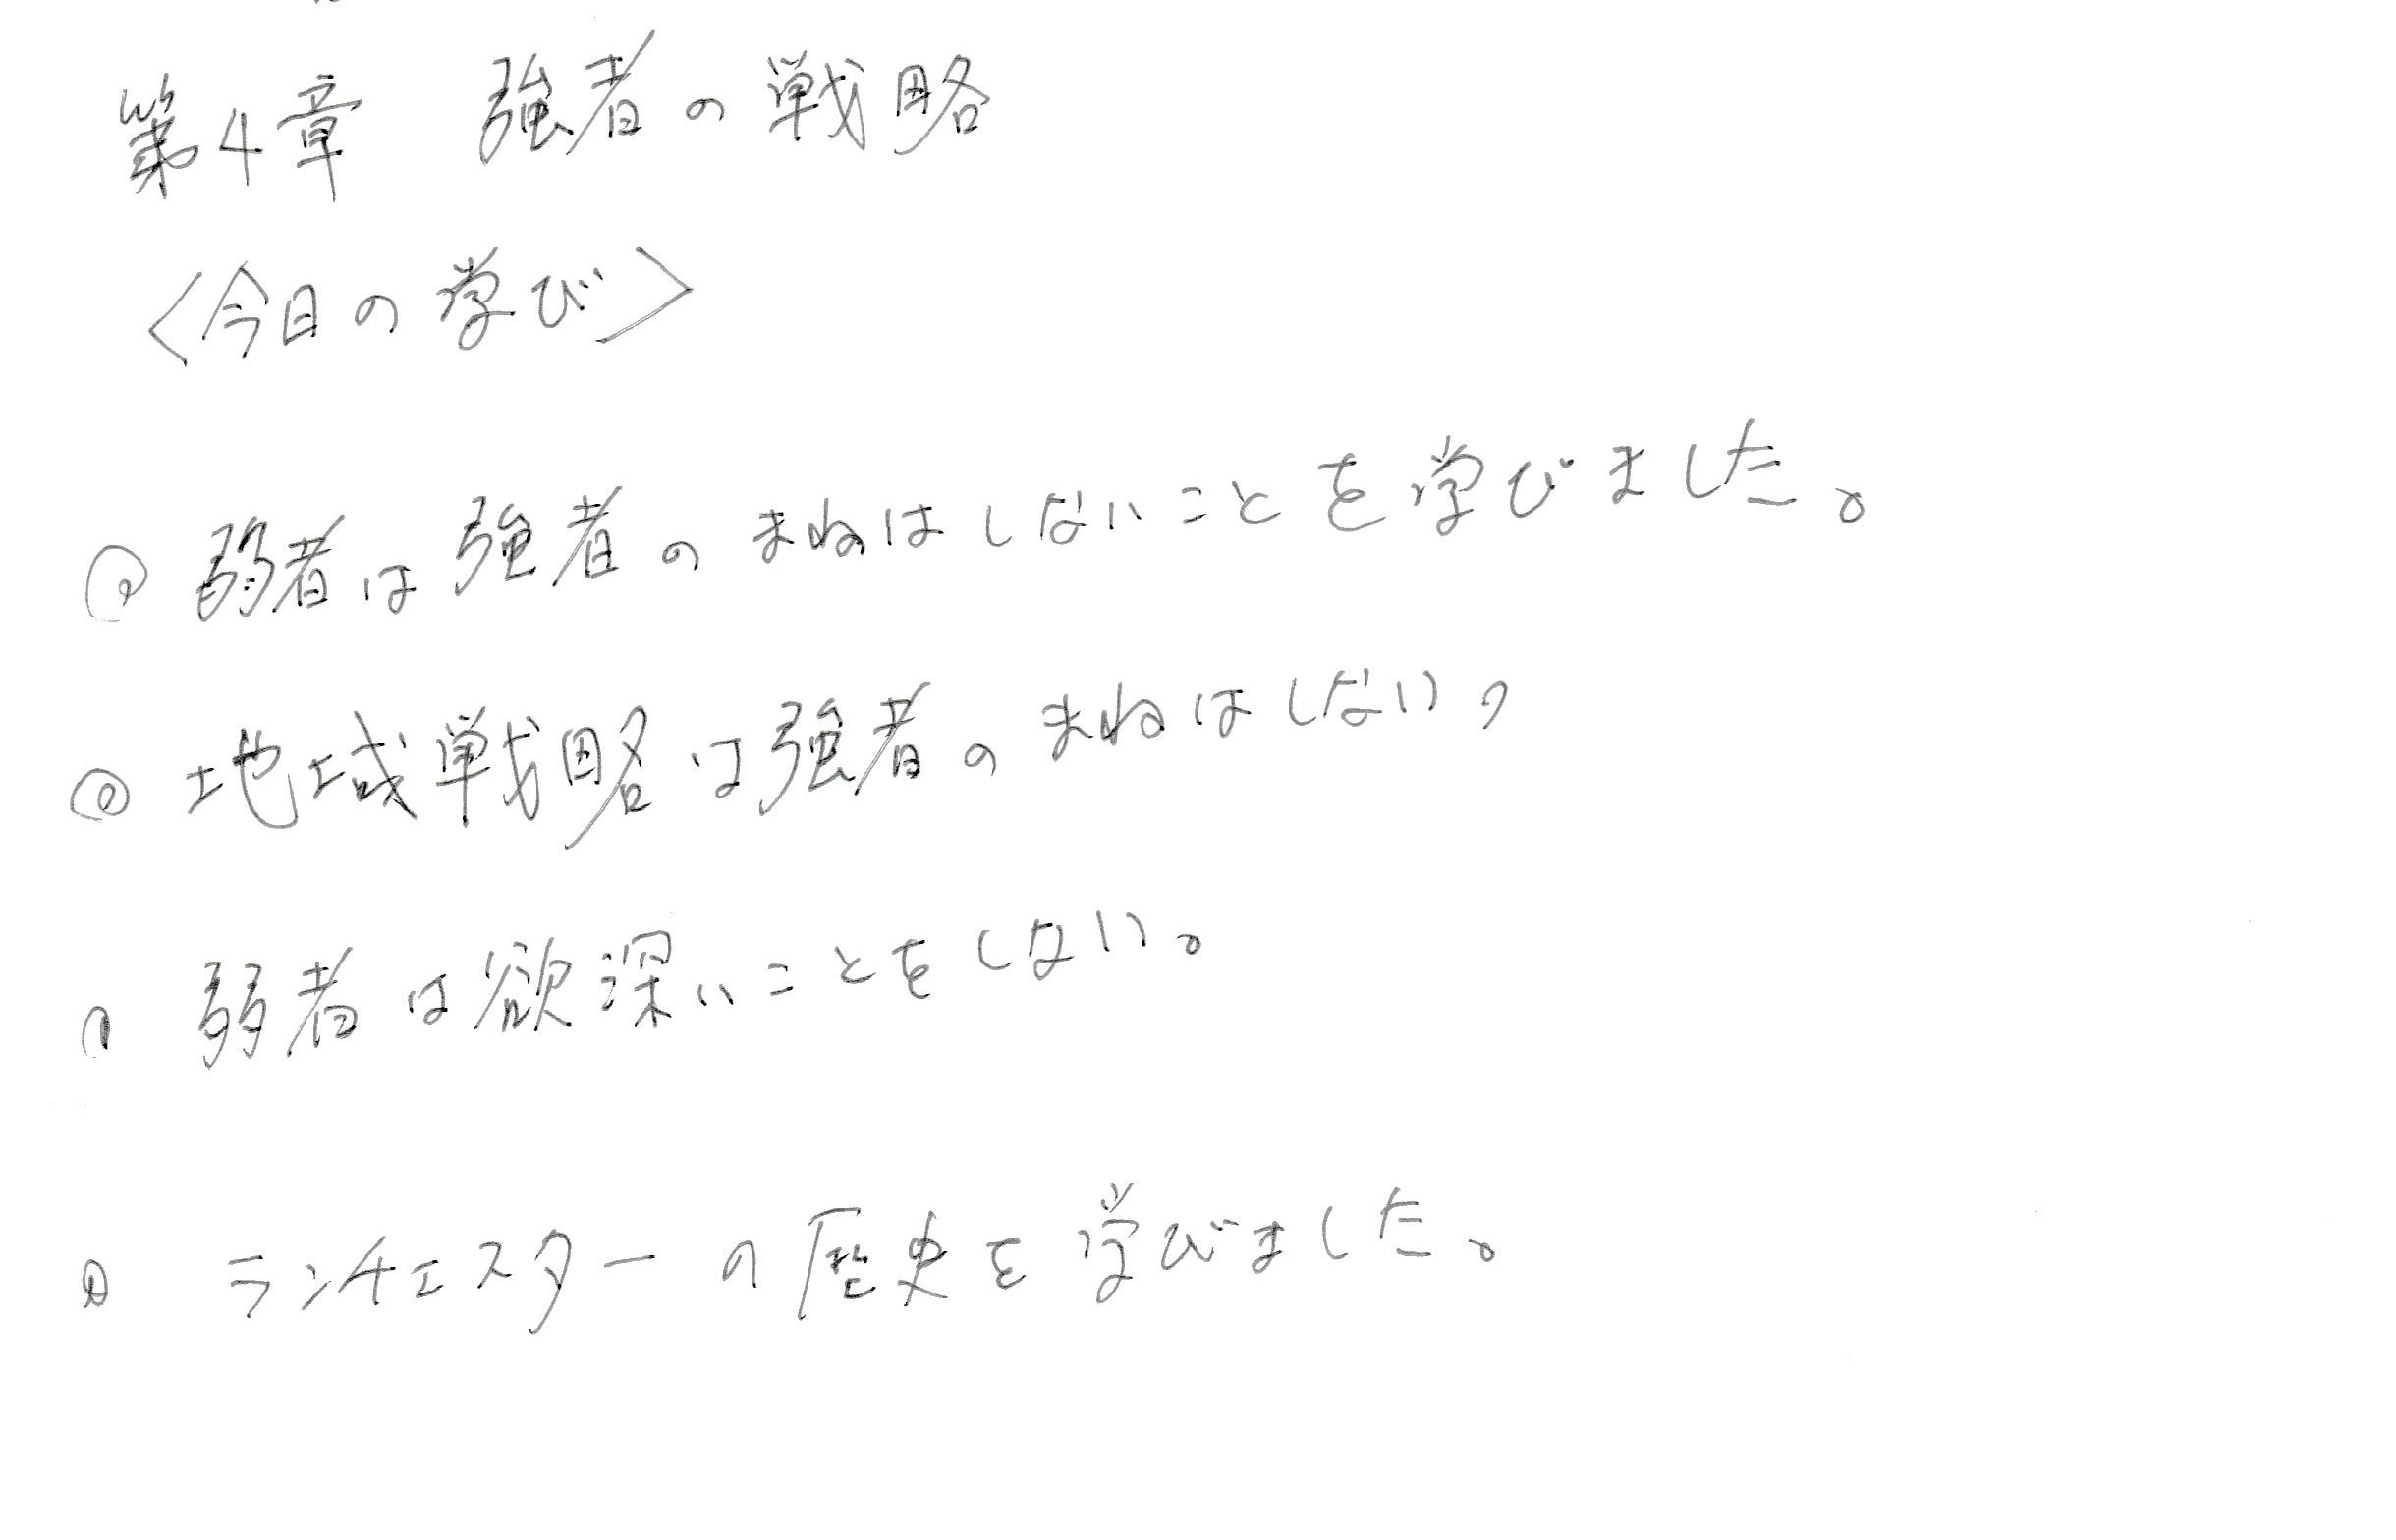 第4章　強者の戦略
〈今日の学び〉
◎ 弱者は強者のまねはしないことを学びました。
◎ 地域戦略は強者のまねはしない。
○ 弱者は欲深いことをしない。
◎ ランチェスターの歴史を学びました。